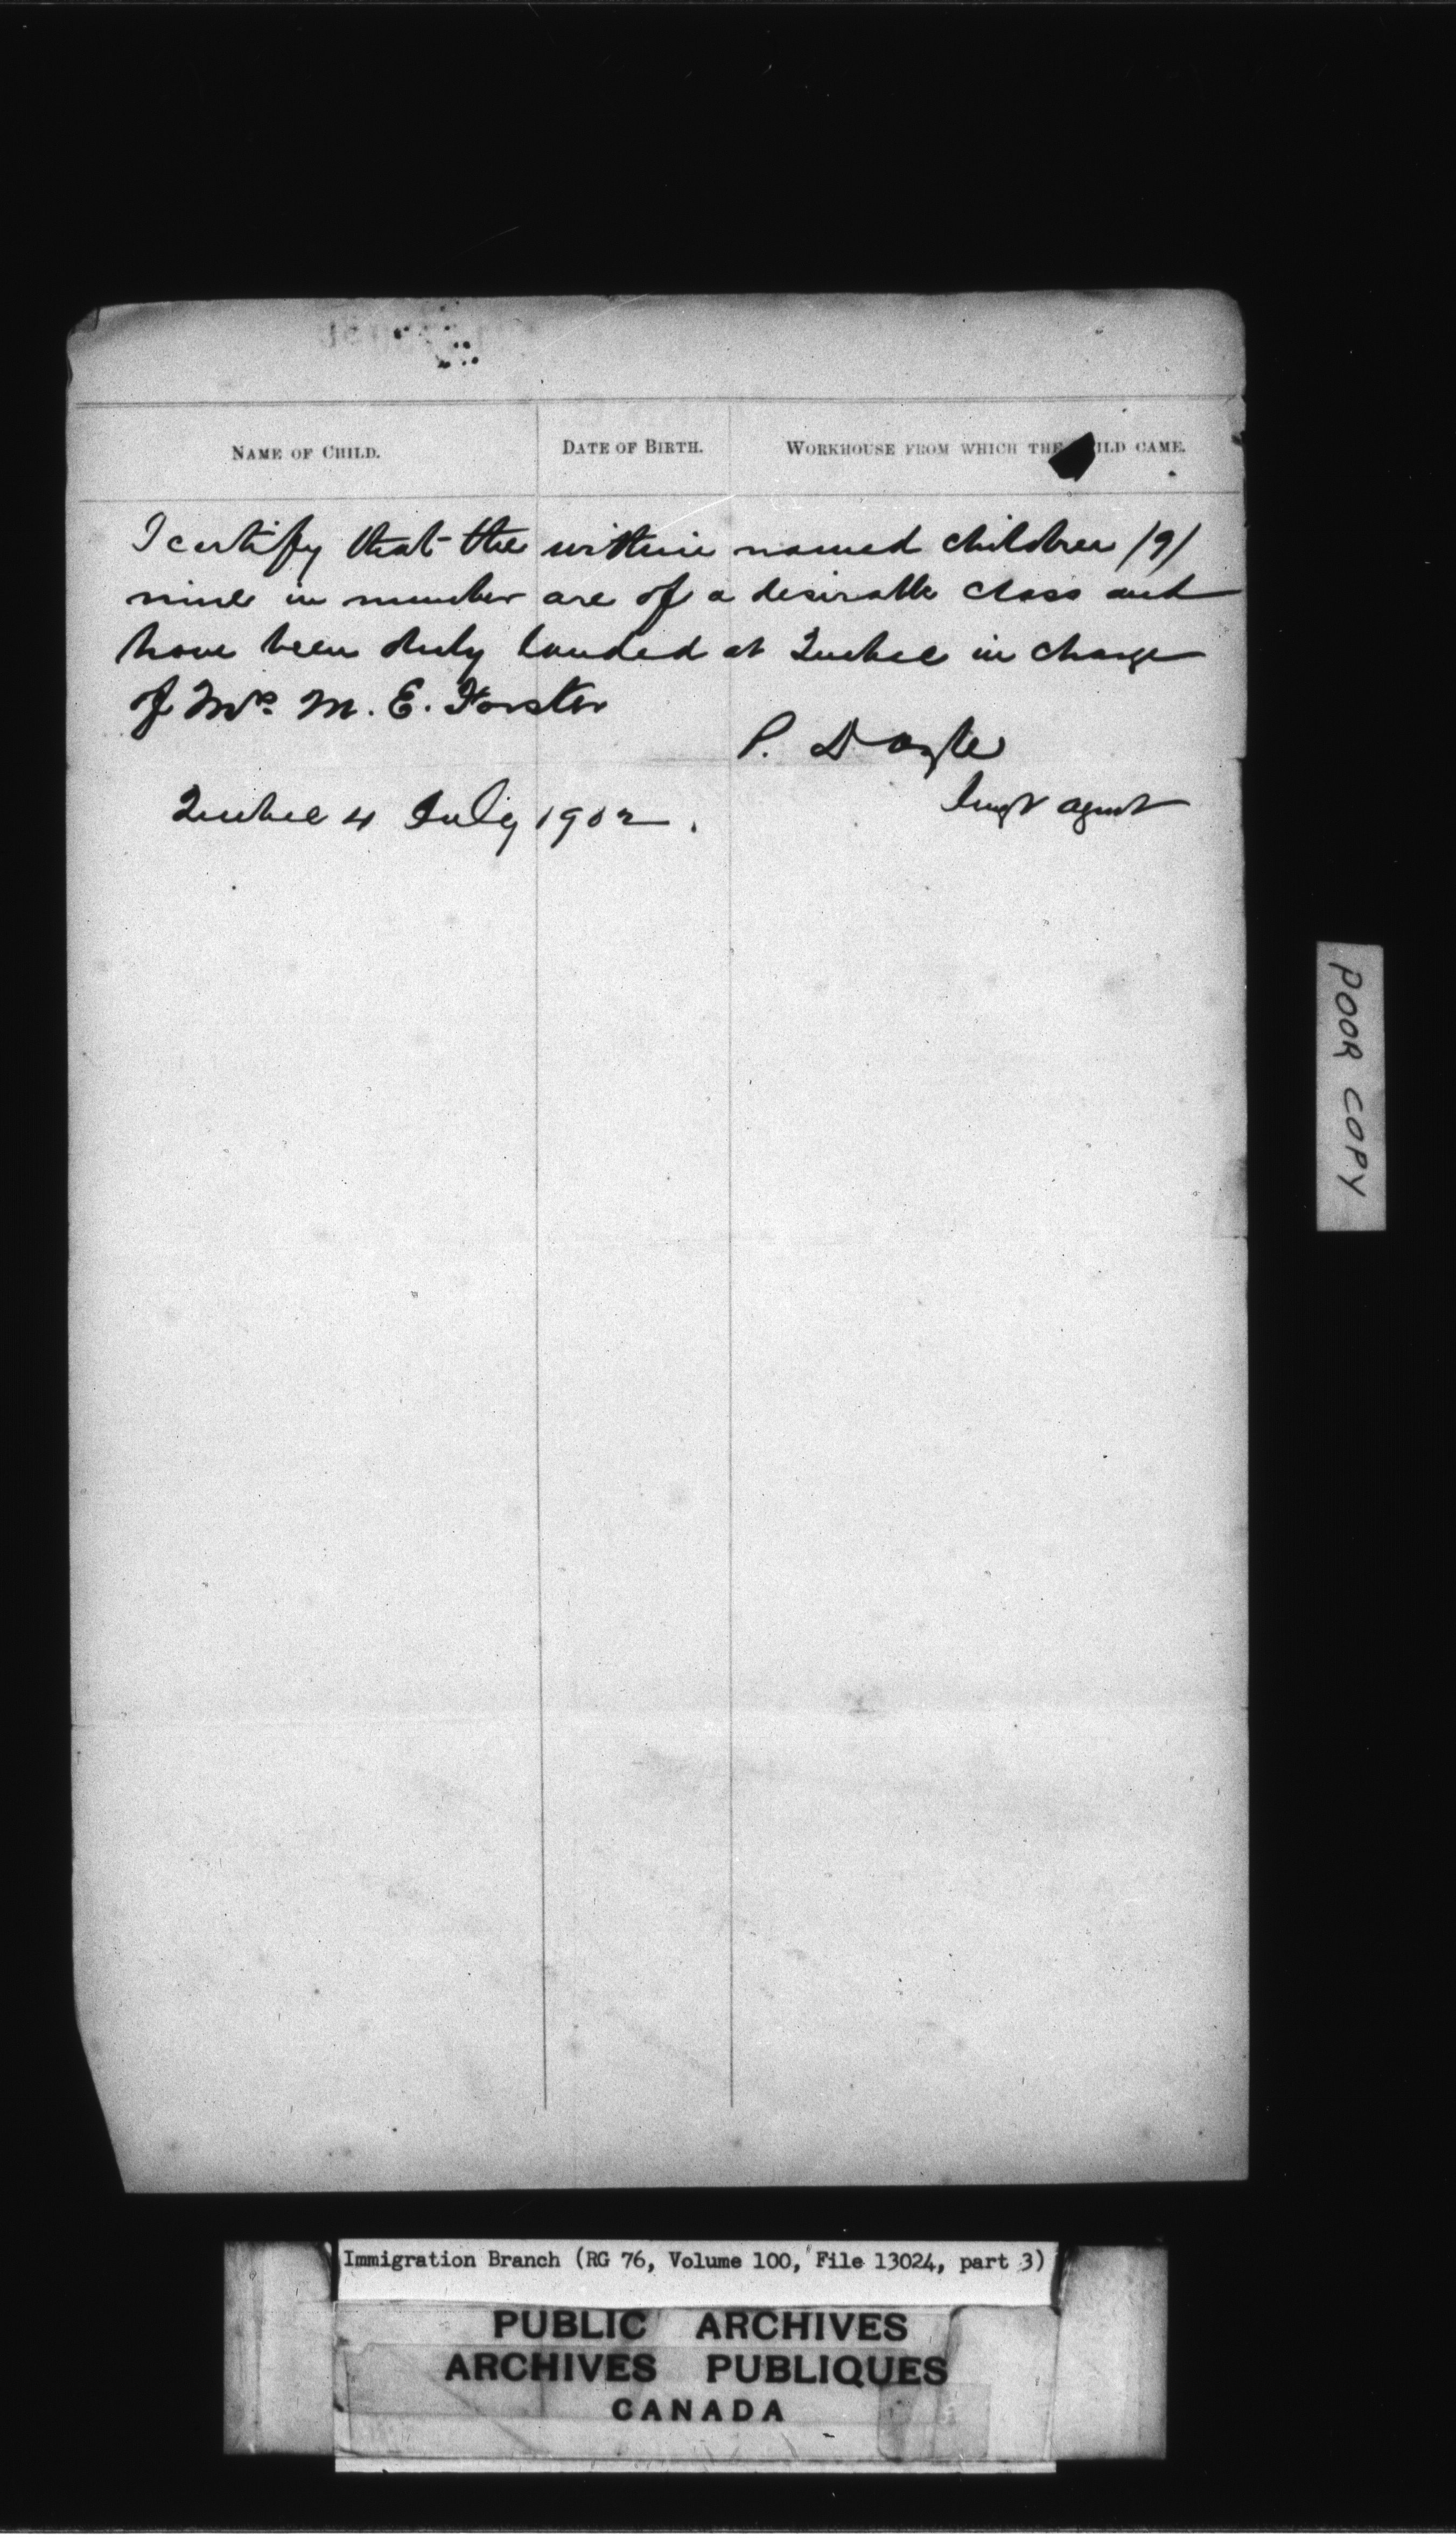 NAME OF CHILD. DATE OF BIRTH. WORKHOUSE FROM WHICH THE ILD CAME.
I certify that the within named children /9/
nine in number are of a desirable class and
have been duly landed at Quebec in charge
of Mrs. M. E. Forster
P. Doyle
Immgt agent
Quebec 4 July 1902.
POOR COPY
Immigration Branch (RG 76, Volume 100, File 13024, part 3)
PUBLIC ARCHIVES
ARCHIVES PUBLIQUES
CANADA